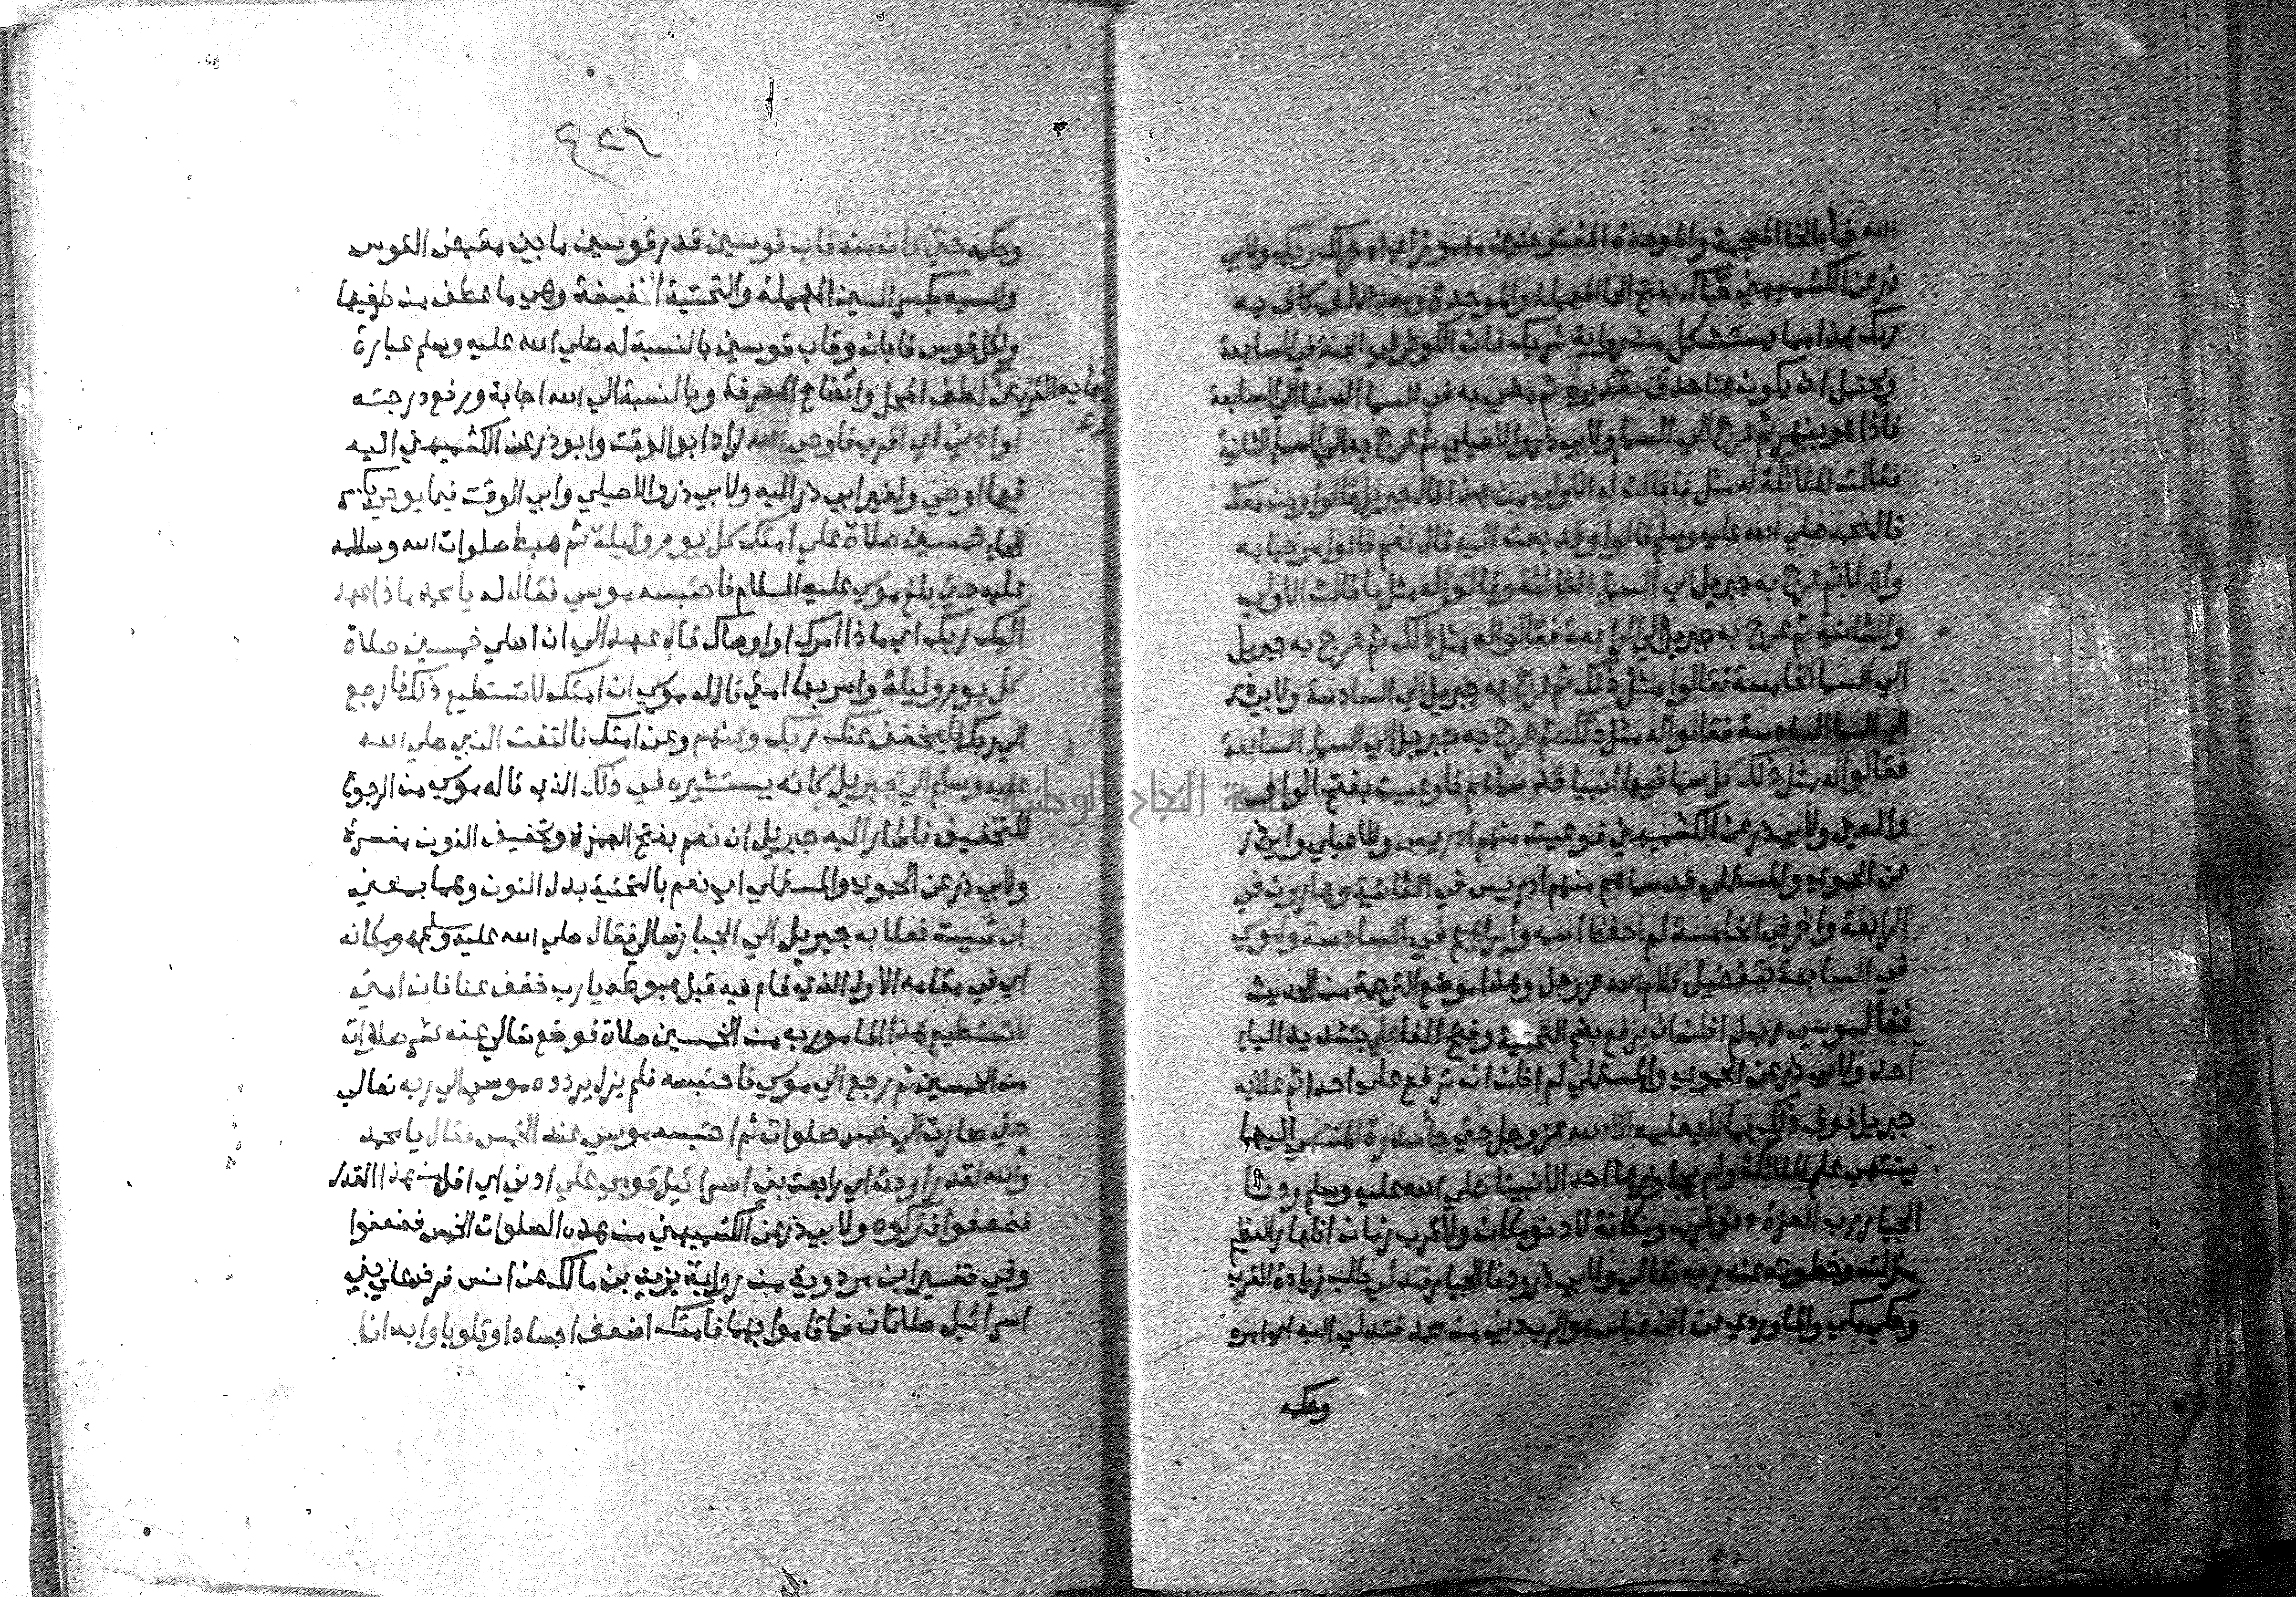 الله خبأ بالخا المعجمة والموحدة المفتوحتين مهموزا اي ادخر لك ربك ولابي
ذر عن الكشميهني حباك بفتح الحا المهملة والموحدة وبعد الالف كاف به
ربك هذا مما يستشكل من رواية شريك فان الكوثر في الجنة في السابعة
ويحتمل ان يكون هنا حذف تقديره ثم مضي به في السما الدنيا الي السابعة
فاذا هو بنهر ثم عرج الي السما ولابي ذر والاصيلي ثم عرج به الي السما الثانية
فقالت الملائكة له مثل ما قالت له الاولي من هذا قال جبريل قالوا ومن معك
قال محمد صلي الله عليه وسلم قالوا وقد بعث اليه قال نعم قالوا مرحبا به
واهلا ثم عرج به جبريل الي السماء الثالثة وقالوا له مثل ما قالت الاولي
والثانية ثم عرج به جبريل الي الرابعة فقالوا له مثل ذلك ثم عرج به جبريل
الي السما الخامسة فقالوا مثل ذلك ثم عرج به جبريل الي السادسة ولابي ذر
الي السما السادسة فقالوا له مثل ذلك ثم عرج به جبريل الي السماء السابعة
فقالوا له مثل ذلك كل سما فيها انبيا قد سماهم فاوعيت بفتح الواو
والعين ولابي ذر عن الكشميهني فوعيت منهم ادريس وللاصيلي وابي ذر
عن الحموي والمستملي قد سماهم منهم ادريس في الثانية وهارون في
الرابعة واخر في الخامسة لم احفظ اسمه وابراهيم في السادسة وموسي
في السابعة بتفضيل كلام الله عز وجل وهذا موضع الترجمة من الحديث
فقال موسي رب لم اظن ان يرفع بضم التحتية وفتح الفا علي بتشديد الياء
احد ولابي ذر عن الحموي والمستملي لم اظن ان ترفع علي احدا ثم علا به
جبريل فوق ذلك بما لا يعلمه الا الله عز وجل حتي جا سدرة المنتهي اليها
ينتهي علم الملائكة ولم يجاوزها احد الا نبينا صلي الله عليه وسلم ودنا
الجبار رب العزة دنو قرب ومكانة لا دنو مكان ولا قرب زمان اظهارا لعظيم
منزلته وحظوته عند ربه تعالي ولابي ذر ودنا الجبار فتدلي طلب زيادة القرب
وحكي مكي والماوردي عن ابن عباس هو الرب دني من محمد فتدلي اليه اي امره
وحكمه
٤٢٦
وحكمه حتي كان منه قاب قوسين قدر قوسين ما بين مقبض القوس
والسيه بكسر السين المهملة والتحتية الخفيفة وهي ما عطف من طرفيها
ولكل قوس قابان وقاب قوسين بالنسبة له صلي الله عليه وسلم عبارة
عن لطف المحل وايضاح المعرفة وبالنسبة الي الله اجابة ورفع درجته
او ادني اي اقرب فاوحي الله زاد ابو الوقت وابو ذر عن الكشميهني اليه
فيما اوحي ولغير ابي ذر اليه ولابي ذر والاصيلي وابي الوقت فيما يوحي
الحاء خمسين صلاة علي امتك كل يوم وليلة ثم هبط صلوات الله وسلامه
عليه حتي بلغ موسي عليه السلام فاحتبسه موسي فقال له يا محمد ماذا عهد
اليك ربك اي ماذا امرك او اوصاك قال عهد الي ان اصلي خمسين صلاة
كل يوم وليلة وامر بها امتي قال له موسي ان امتك لا تستطيع ذلك فارجع
الي ربك فليخفف عنك ربك وعنهم وعن امتك فالتفت النبي صلي الله
عليه وسلم الي جبريل كانه يستشيره في ذلك الذي قاله موسي من الرجوع
للتخفيف فاشار اليه جبريل ان نعم بفتح الهمزة وتخفيف النون مفسرة
ولابي ذر عن الحموي والمستملي اي نعم بالتحتية بدل النون وهما بمعني
ان شيت فعلا به جبريل الي الجبار تعالي فقال صلي الله عليه وسلم وهو مكانه
اي في مقامه الاول الذي قام فيه قبل هبوطه يا رب خفف عنا فان امتي
لا تستطيع هذا المامور به من الخمسين صلاة فوضع تعالي عنه عشر صلوات
من الخمسين ثم رجع الي موسي فاحتبسه فلم يزل يردده موسي الي ربه تعالي
حتي صارت الي خمس صلوات ثم احتبسه موسي عند الخمس فقال يا محمد
والله لقد راودت اي راجعت بني اسرائيل قومي علي ادني اي اقل من هذا القدر
فضعفوا فتركوه ولابي ذر عن الكشميهني من هذه الصلوات الخمس فضعفوا
وفي تفسير ابن مردوية من رواية يزيد بن مالك عن انس فرض علي بني
اسرائيل صلاتان فما قاموا بهما فامتك اضعف اجسادا وقلوبا وابدانا
جامعة النجاح الوطنية